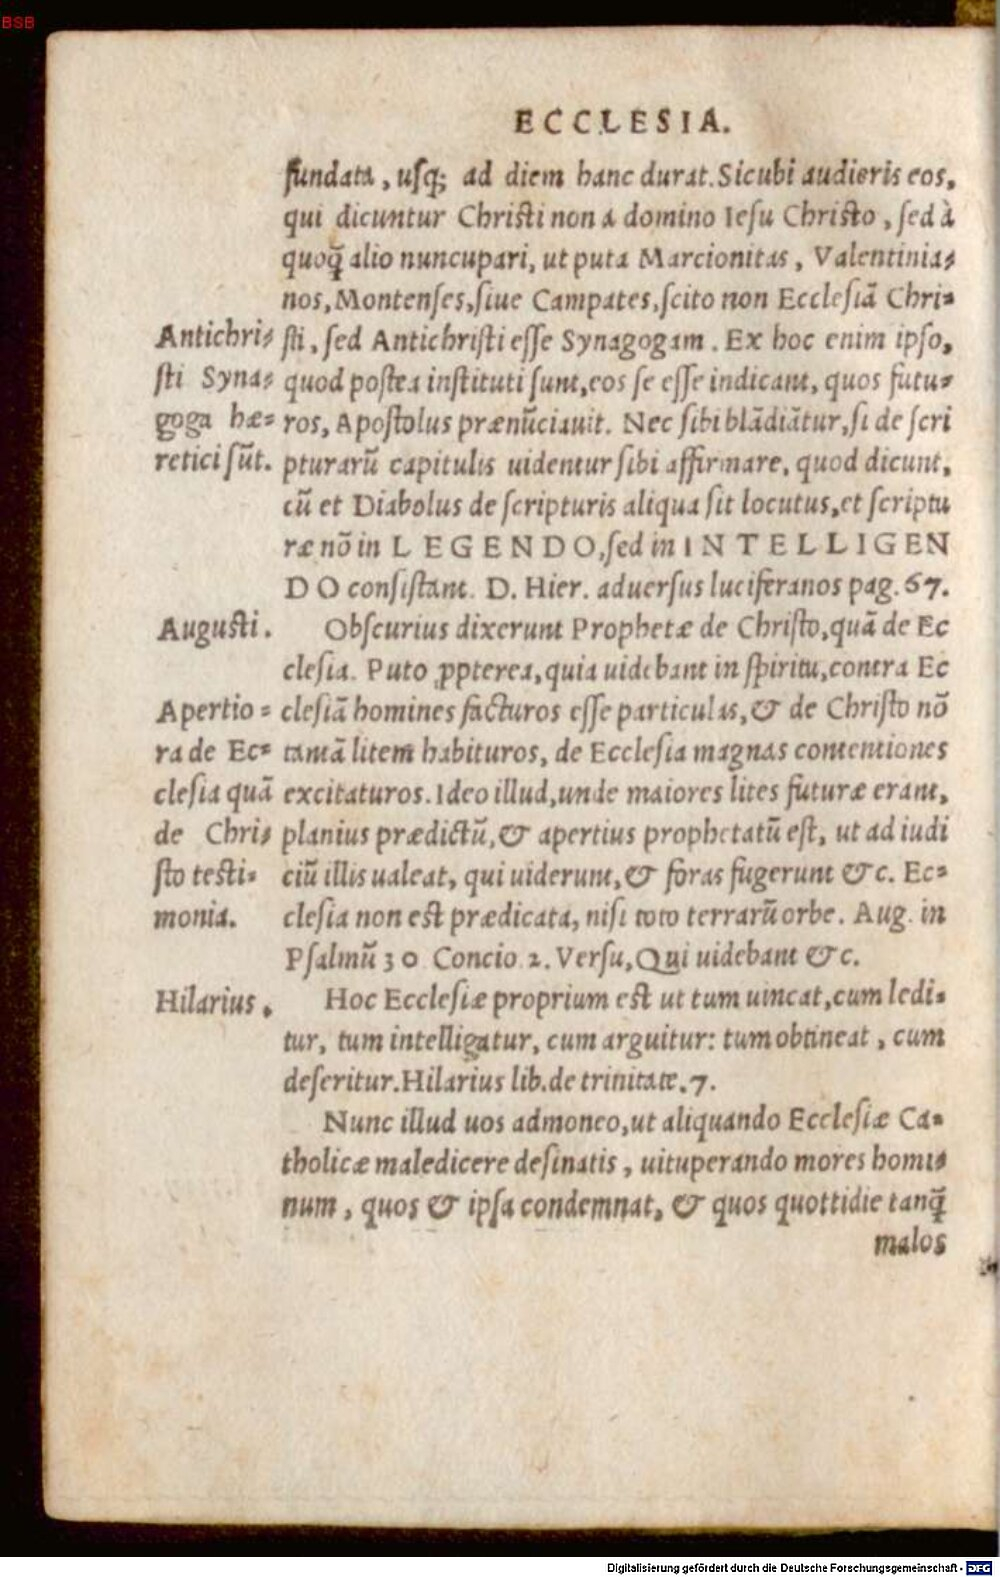 BSB
ECCLESIA.
fundata, usq; ad diem hanc durat. Sicubi audieris eos,
qui dicuntur Christi non a domino Iesu Christo, sed à
quoq̃ alio nuncupari, ut puta Marcionitas, Valentinia-
nos, Montenses, siue Campates, scito non Ecclesiã Chri-
sti, sed Antichristi esse Synagogam. Ex hoc enim ipso,
quod postea instituti sunt, eos se esse indicant, quos futu-
ros, Apostolus prænũciauit. Nec sibi blãdiãtur, si de scri
pturarũ capitulis uidentur sibi affirmare, quod dicunt,
cũ et Diabolus de scripturis aliqua sit locutus, et scriptu
ræ nõ in LEGENDO, sed in INTELLIGEN
DO consistant. D. Hier. aduersus luciferanos pag. 67.
Antichri-
sti Syna-
goga hæ-
retici sũt.
Augusti.
Obscurius dixerunt Prophetæ de Christo, quã de Ec
clesia. Puto ꝓpterea, quia uidebant in spiritu, contra Ec
clesiã homines facturos esse particulas, & de Christo nõ
tantã litem habituros, de Ecclesia magnas contentiones
excitaturos. Ideo illud, unde maiores lites futuræ erant,
planius prædictũ, & apertius prophetatũ est, ut ad iudi
ciũ illis ualeat, qui uiderunt, & foras fugerunt &c. Ec-
clesia non est prædicata, nisi toto terrarũ orbe. Aug. in
Psalmũ 30 Concio 2. Versu, Qui uidebant &c.
Apertio-
ra de Ec-
clesia quã
de Chri-
sto testi-
monia.
Hilarius.
Hoc Ecclesiæ proprium est ut tum uincat, cum ledi-
tur, tum intelligatur, cum arguitur: tum obtineat, cum
deseritur. Hilarius lib. de trinitate. 7.
Nunc illud uos admoneo, ut aliquando Ecclesiæ Ca-
tholicæ maledicere desinatis, uituperando mores homi-
num, quos & ipsa condemnat, & quos quottidie tanq̃
malos
Digitalisierung gefördert durch die Deutsche Forschungsgemeinschaft - DFG